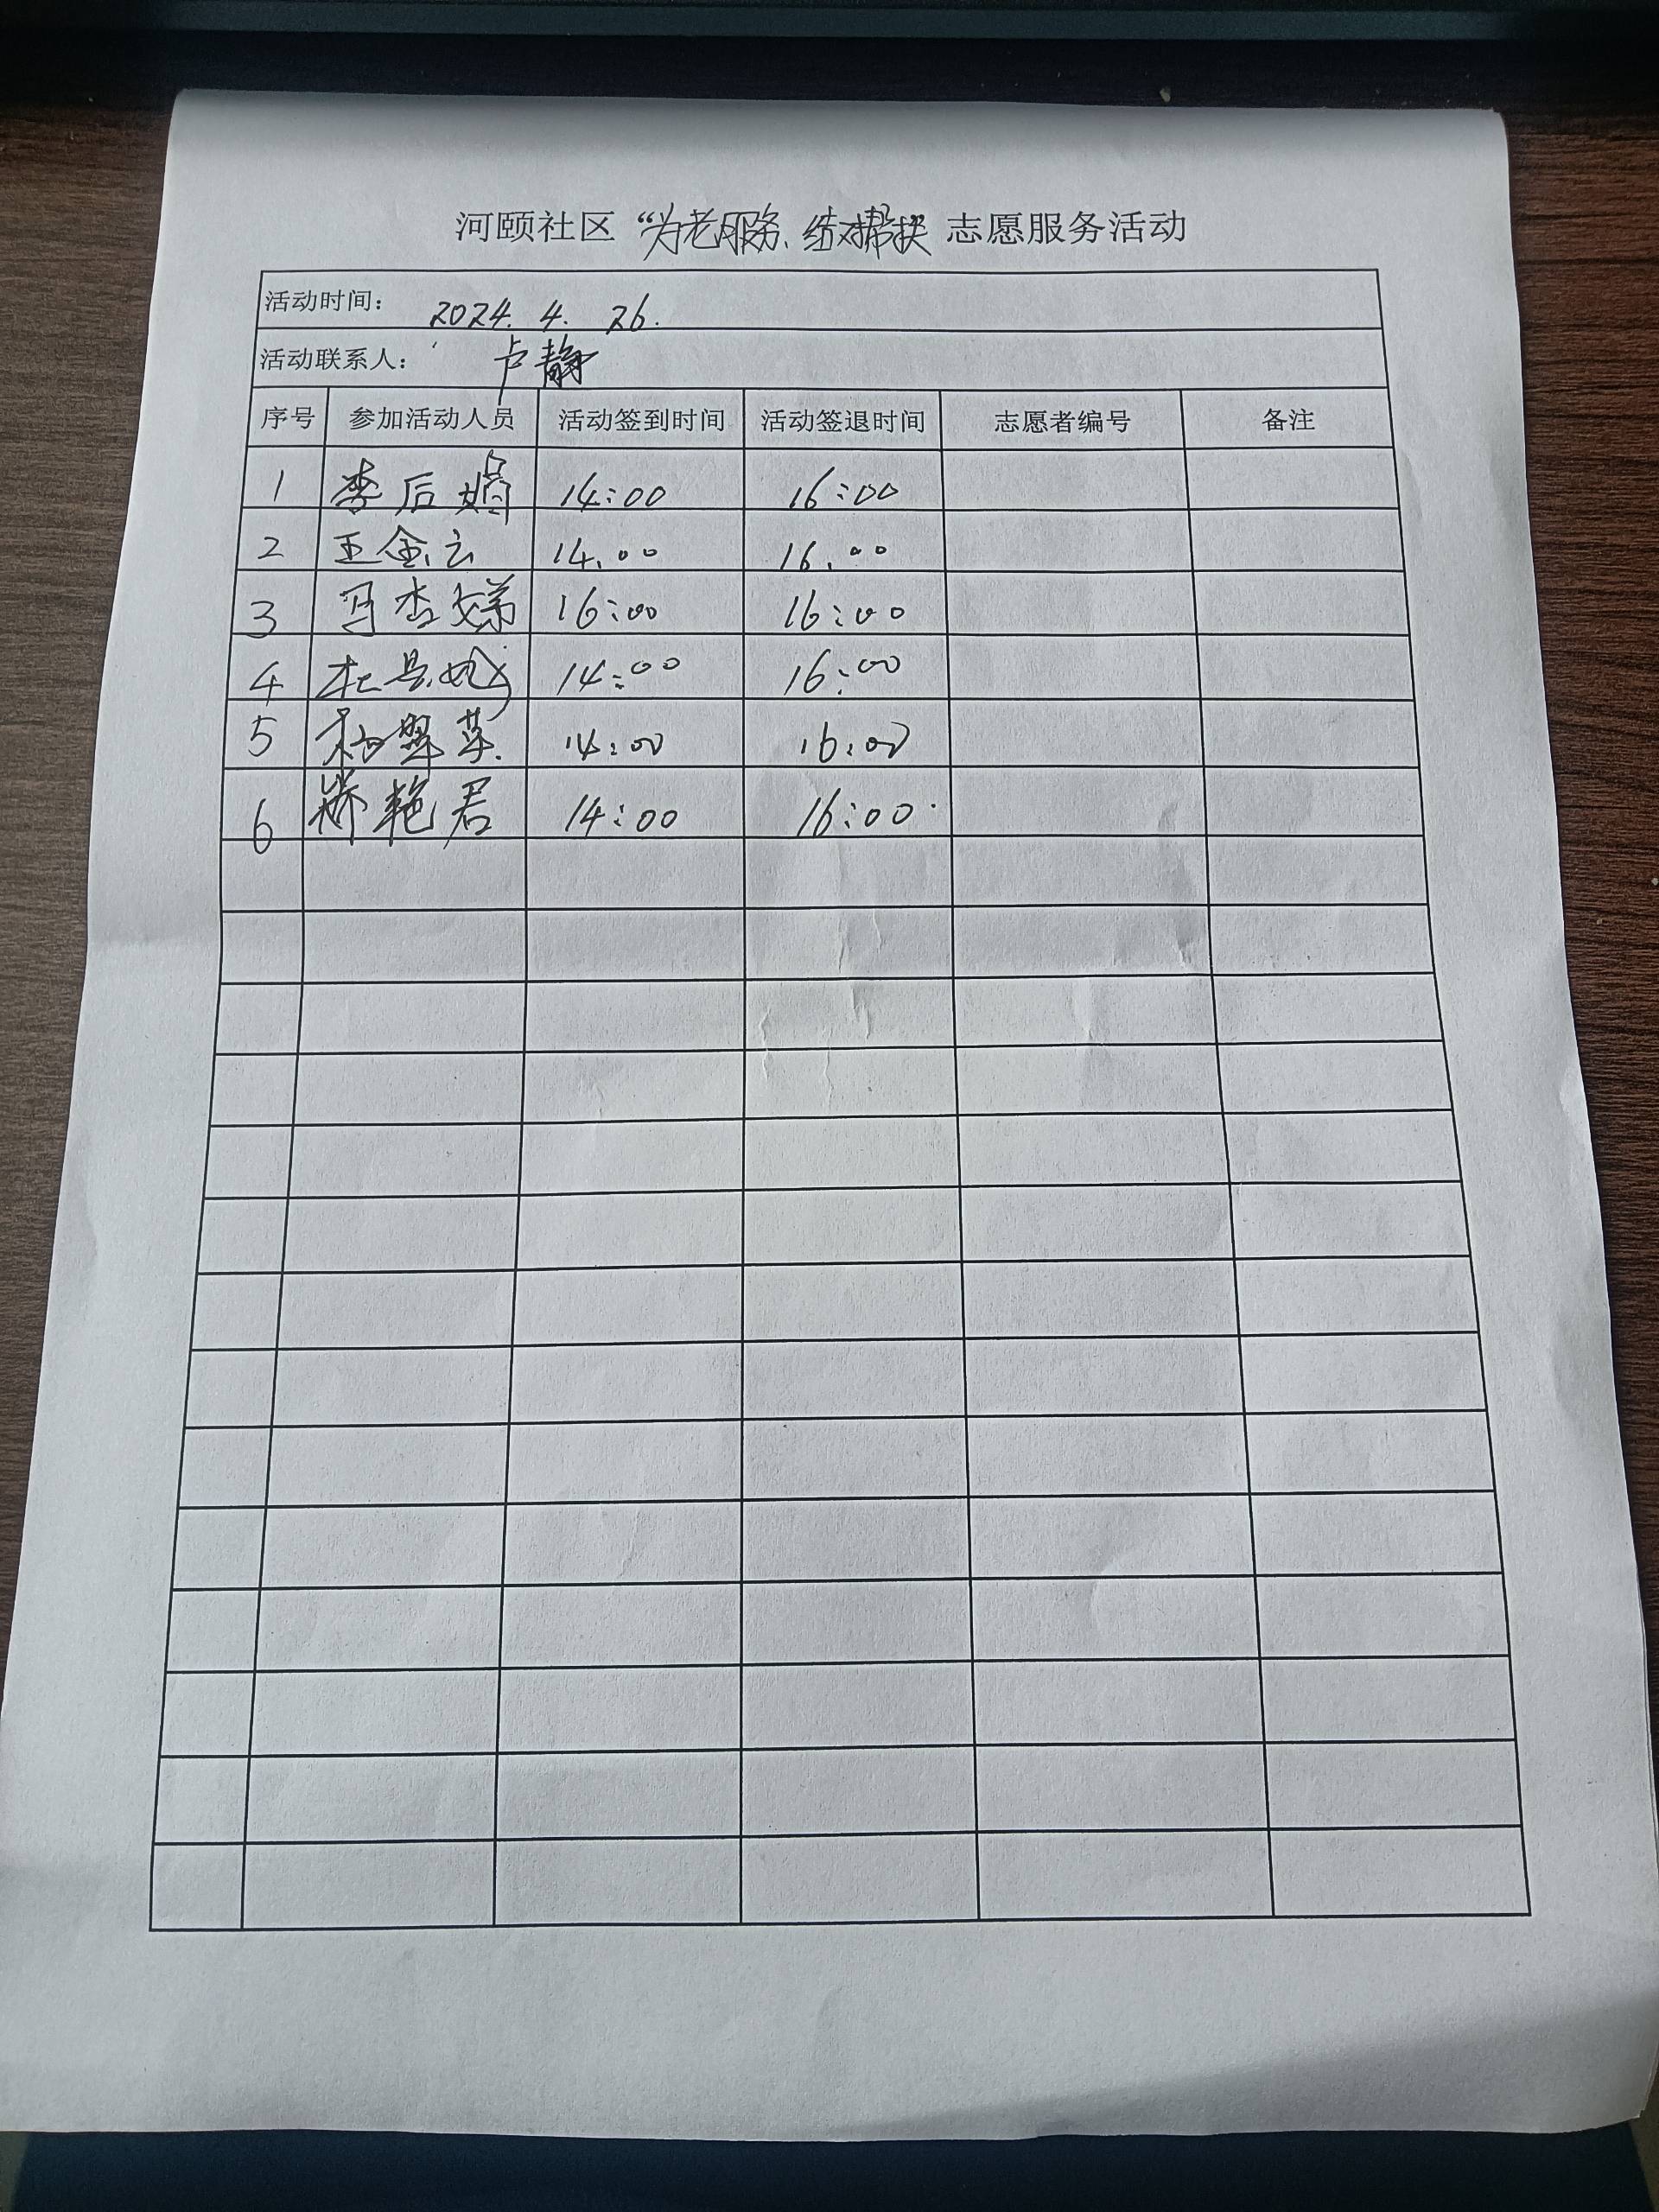 河颐社区 “为老服务、结对帮扶” 志愿服务活动
活动时间： 2024. 4. 26.
活动联系人： 卢静
序号 参加活动人员 活动签到时间 活动签退时间 志愿者编号 备注
1 李后娟 14:00 16:00
2 王金云 14.00 16.00
3 冯杏娣 16:00 16:00
4 杜 14:00 16:00
5 14:00 16:00
6 乔艳君 14:00 16:00